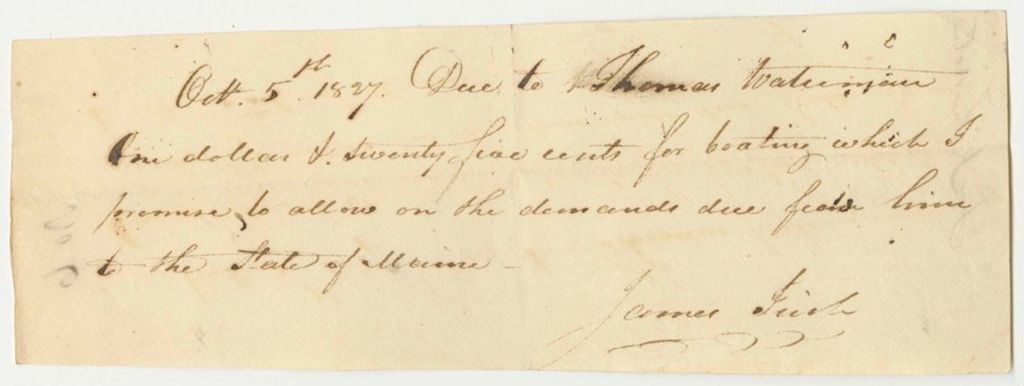 Oct. 5th 1827. Due to Thomas Waterman
One dollar &. twenty five cents for boating which I
promise to allow on the demands due from him
to the State of Maine -
James Irish